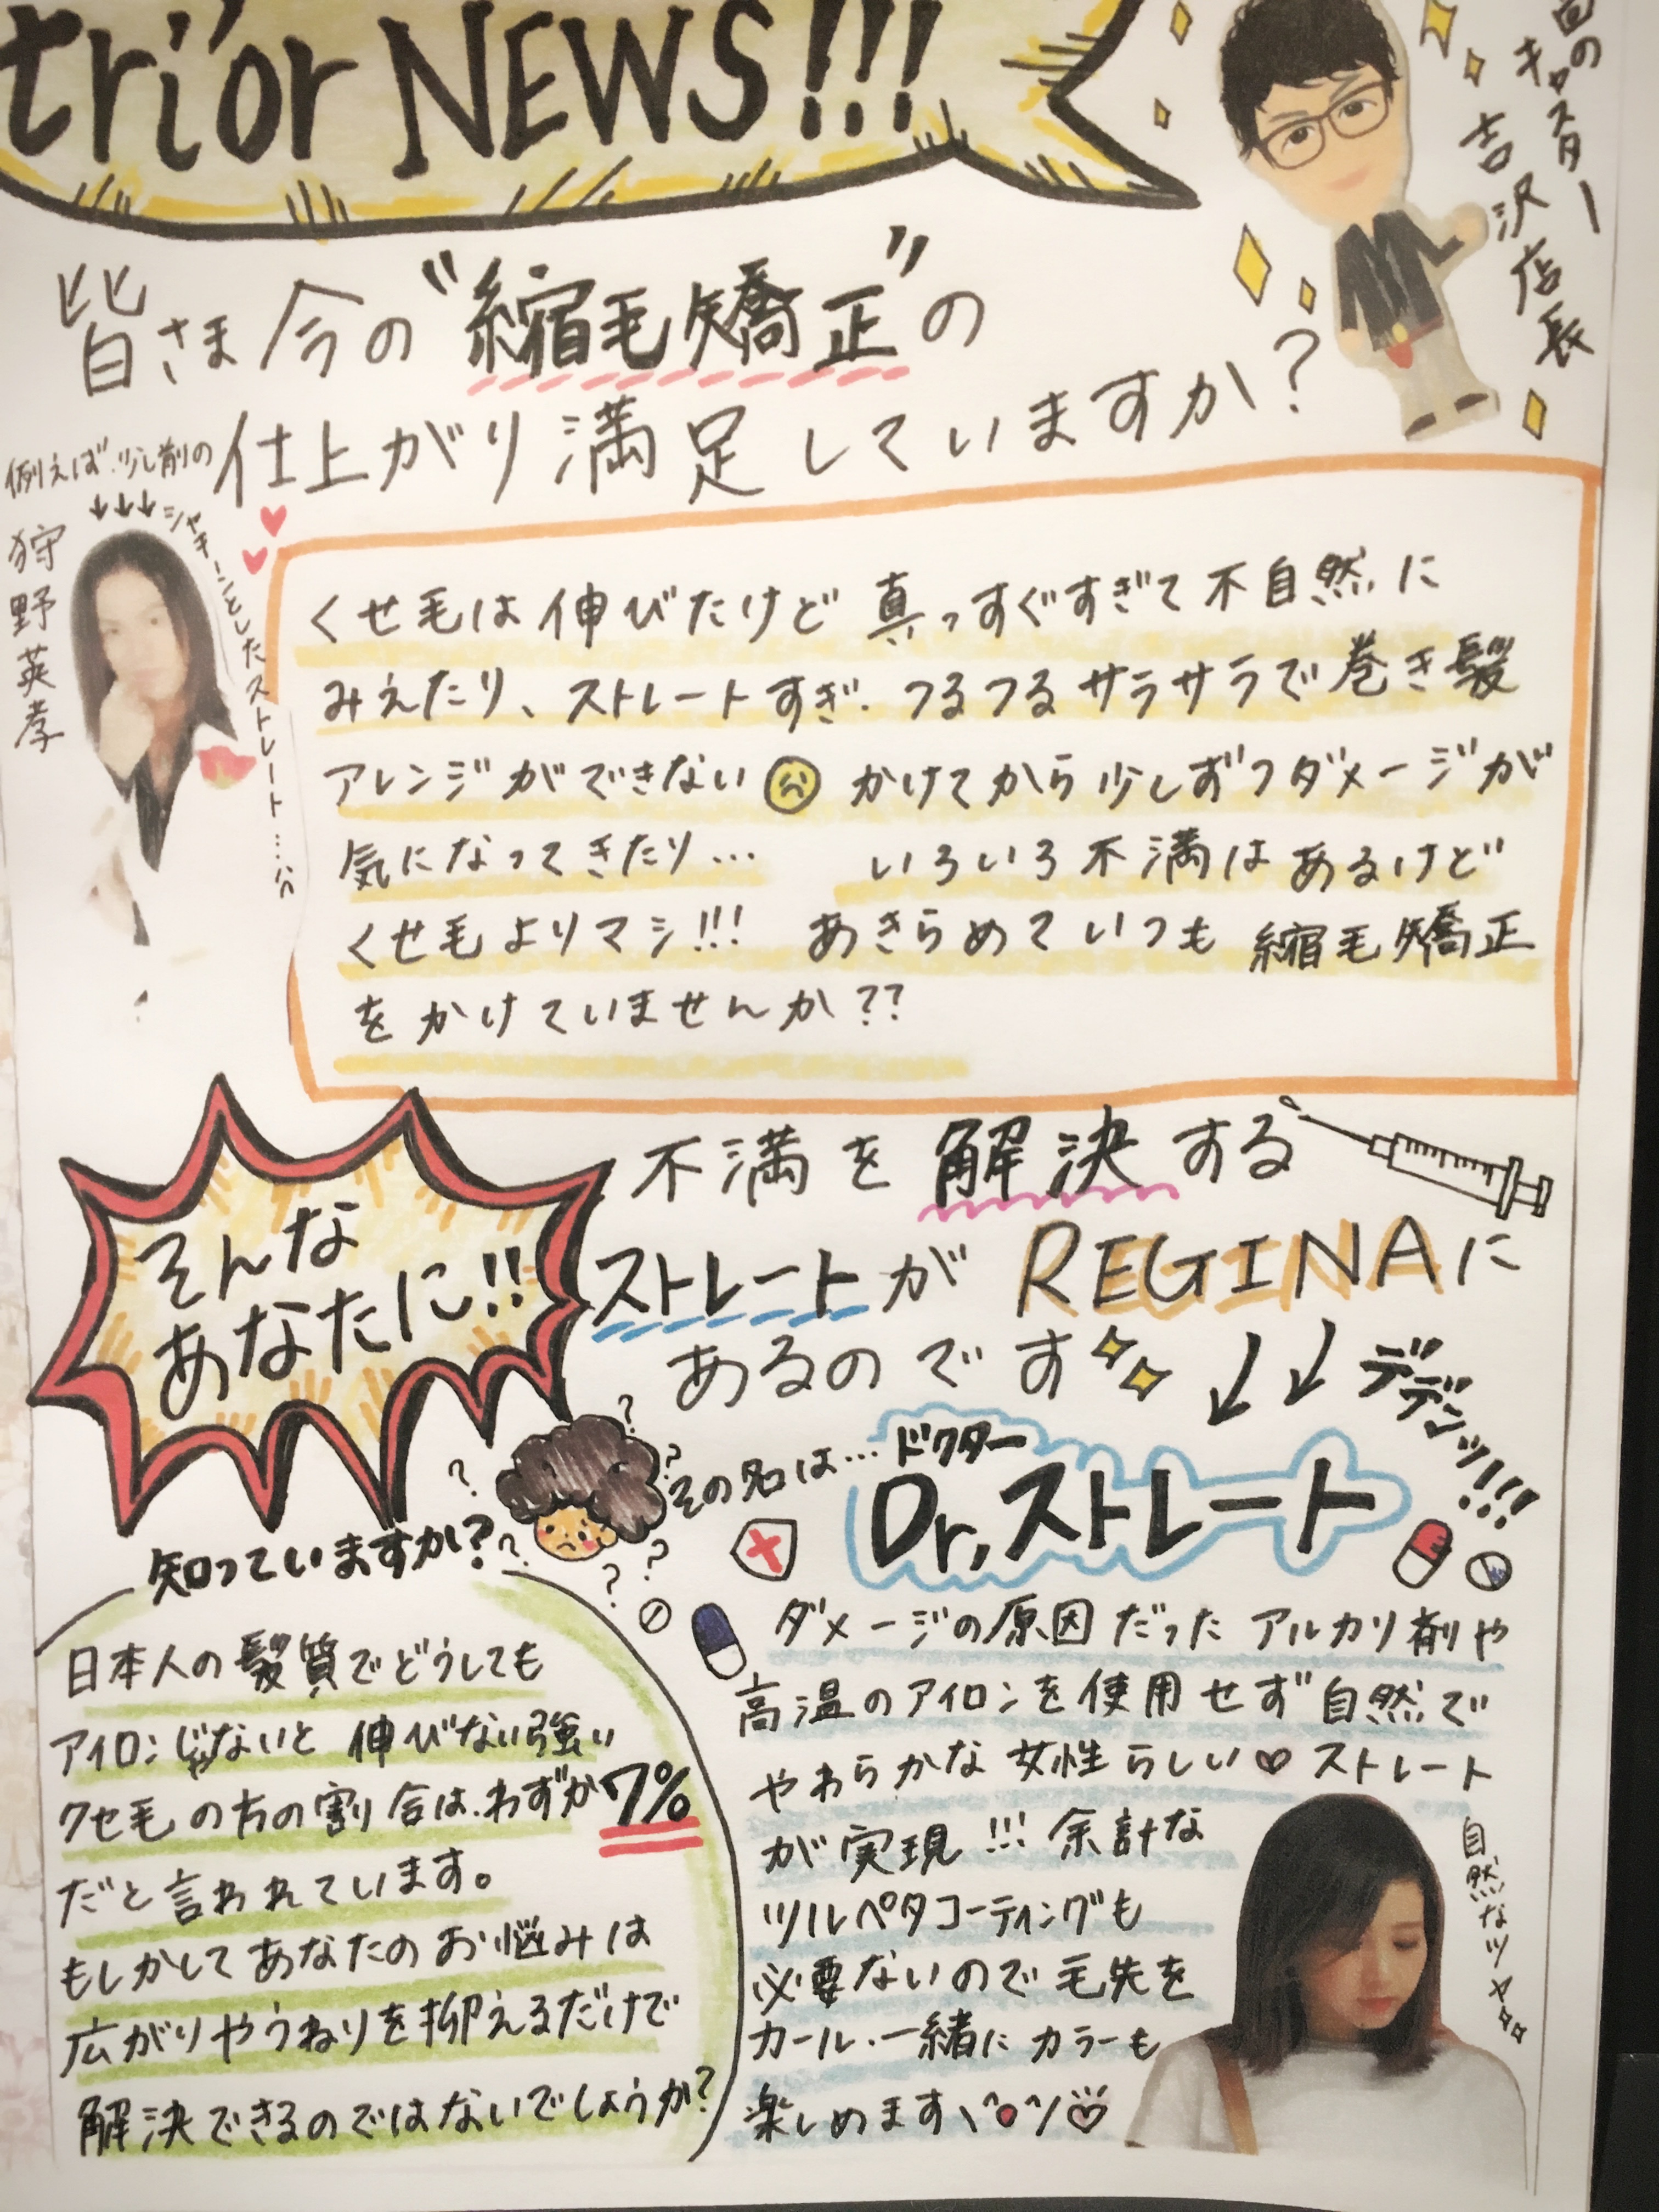 tri'or NEWS!!!
の
キャスター
吉沢店長
皆さま今の"縮毛矯正"の
仕上がり満足していますか?
例えば・少し前の
狩野英孝
シャキーンとしたストレート…
くせ毛は伸びたけど真っすぐすぎて不自然に
みえたり、ストレートすぎ・つるつるサラサラで巻き髪
アレンジができない かけてから少しずつダメージが
気になってきたり… いろいろ不満はあるけど
くせ毛よりマシ!!! あきらめていつも縮毛矯正
をかけていませんか??
そんな
あなたに!!
不満を解決する
ストレートがREGINAに
あるのです
デデンッ!!!
その名は…ドクター
Dr.ストレート
知っていますか?
日本人の髪質でどうしても
アイロンじゃないと伸びない強い
クセ毛の方の割合は、わずか7%
だと言われています。
もしかしてあなたのお悩みは
広がりやうねりを抑えるだけで
解決できるのではないでしょうか?
ダメージの原因だったアルカリ剤や
高温のアイロンを使用せず自然で
やわらかな女性らしい♡ストレート
が実現!!!余計な
ツルペタコーティングも
必要ないので毛先を
カール・一緒にカラーも
楽しめます
自然なツヤ